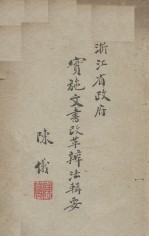 浙江省政府
實施文書改革辦法輯要
陳儀